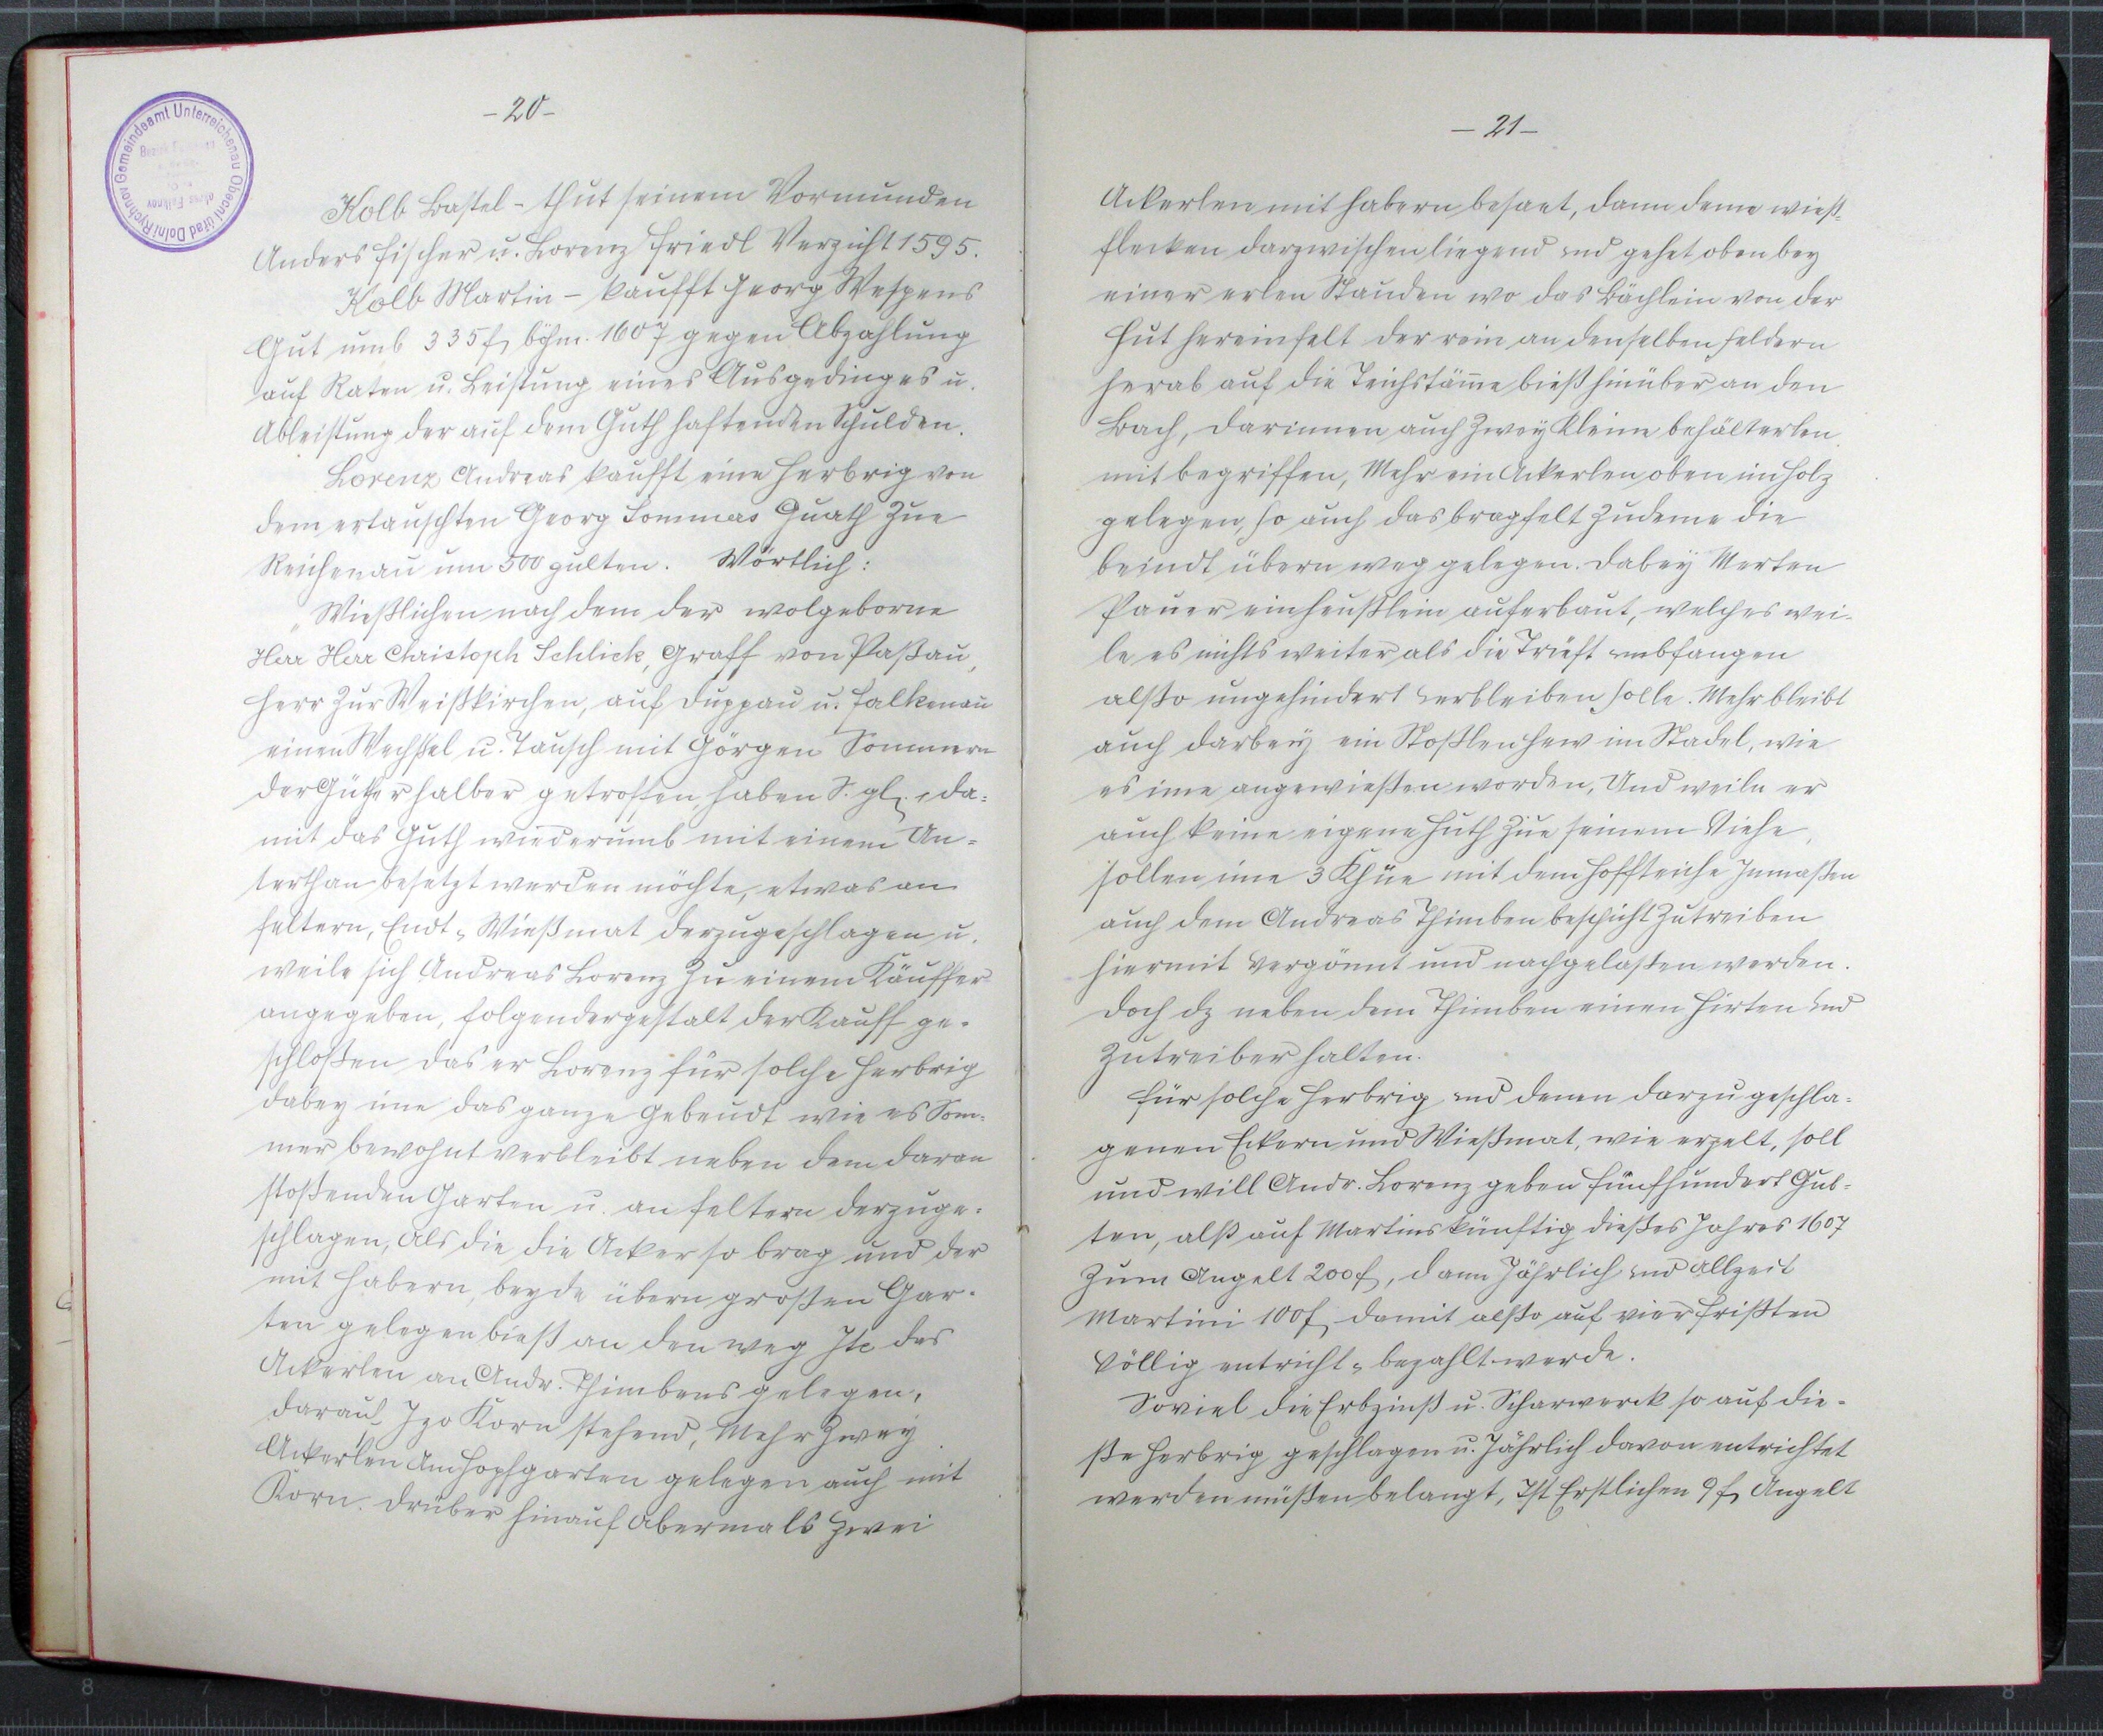 Gemeindeamt Unterreichenau
Obecní úřad Dolní Rychnov
-20-
Kolb Bastel - thut seinem Vormunden
Anders Fischer u. Lorenz Friedl Verzicht 1595.
Kolb Martin - kaufft Georg Wespens
Gut umb 335 f, böhm. 1607 gegen Abzahlung
auf Raten u. Leistung eines Ausgedinges u.
Ableistung der auf dem Guth haftenden Schulden.
Lorenz Andreas kaufft eine Herbrig von
dem ertauschten Georg Sommers Guath Zue
Reichenau um 500 gulten. Wörtlich:
"Wießlichen nach dem der wolgeborne
Herr Herr Christoph Schlick, Graff von Paßau,
Herr Zur Weißkirchen, auf Duppau u. Falkenau
einen Wechßel u. Tausch mit Görgen Sommern
der Gütter halber getroffen, haben S. gl., da=
mit das Guth wiederumb mit einem Un=
terthan besetzt werden möchte, etwas an
feltern, Endt, Wießmat derzugeschlagen u.
weile sich Andreas Lorenz Zu einem Käuffer
angegeben, folgendergestalt der Kauff ge=
schloßen das er Lorenz für solche Herbrig
dabey ime das ganze Gebeudt wie es Som=
mer bewohnt verbleibt neben dem daran
stoßenden Garten u. an feltern derzuge=
schlagen, Als die die Acker so brag und der
mit Habern, beyde übern großen Gar=
ten gelegen bieß an den weg Ite das
Ackerlen an Andr. Thimbens gelegen,
darauf Izo Korn stehend, Mehr Zwey
Ackerlen Am Hopfgarten gelegen auch mit
Korn. Drüber hinauf Abermals Zwei
-21-
Ackerlen mit Habern besaet, dann deme wieß=
flecken darzwischen liegend und gehet oben bey
einer erlen Stauden wo das Bächlein von der
Hut hereinfelt der rein an denselben feldern
herab auf die Teichstäm̄e bieß hinüber an den
Bach, darinnen auch Zwey Kleine behälterlen
mit begriffen, Mehr ein Ackerlen oben im Holz
gelegen, so auch das bragfelt Zudeme die
beindt übern weg gelegen. Dabey Merten
Pauer ein heußlein auferbaut, welches wei=
le es nichts weiter als die Trüft umbfangen
alßo ungehindert verbleiben solle. Mehr bleibt
auch darbey ein Stoßlen hew im Stadel, wie
es ime angewießen worden, Und weiln er
auch keine eigene Huth Zue seinem Viehe,
sollen ime 3 Khüe mit dem Hoffteiche Inmaßen
auch dem Andreas Thimben beschicht Zutreiben
hiermit vergönnt und nachgelaßen werden.
Doch dz neben dem Thimben einen Hirten und
Zutreiber halten.
Für solche Herbrig und denen darzu geschla=
genen Eckern und Wießmat, wie erzelt, soll
und will Andr. Lorenz geben fünfhundert Gul=
ten, alß auf Martins künftig dießes Jahres 1607
Zum Angelt 200 f, dann Jährlich und Allzeit
Martini 100 f, damit alßo auf vier frißten
völlig entricht, bezahlt werde.
Soviel die Erbzinß u. Scharwerck so auf die=
ße Herbrig geschlagen u. Jährlich davon entrichtet
werden müßen belangt, Ist Erstlichen 9 f, Angelt